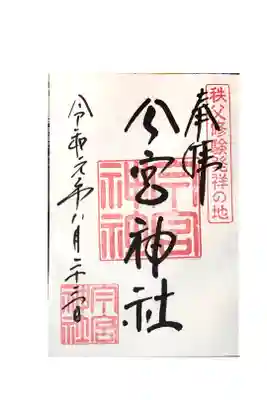 秩父修験発祥の地
奉拝
今宮神社
今宮神社
令和元年八月
今宮神社